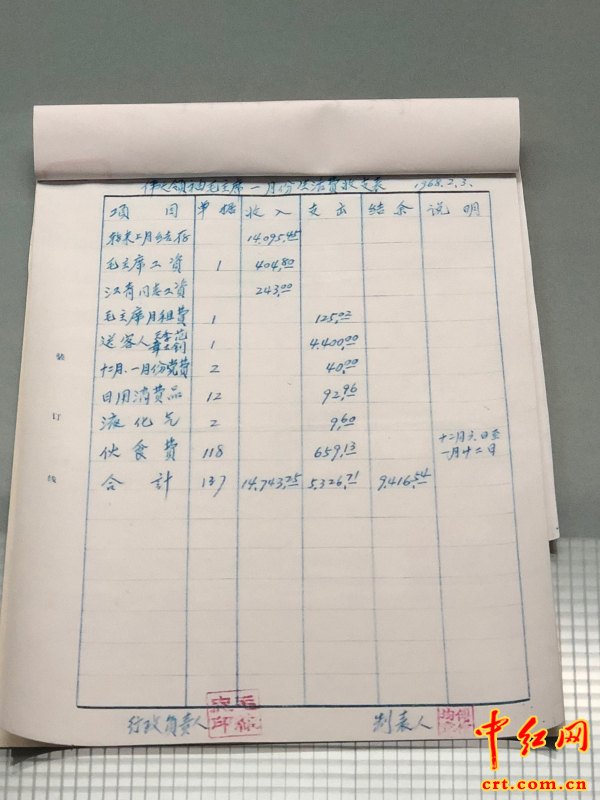 伟大领袖毛主席一月份生活费收支表 1968.2.3.
項 目 单据 收入 支出 结余 说明
转来上月结存 14,095.45
毛主席工资 1 404.80
江青同志工资 243.00
毛主席月租费 1 125.02
送客人 1 4,400.00
十二月、一月份党费 2 40.00
日用消费品 12 92.96
液化气 2 9.60
伙食費 118 659.13 十二月六日至
一月十二日
合計 137 14,743.25 5,326.71 9,416.54
装
订
线
行政负责人
制表人
中红网
crt.com.cn